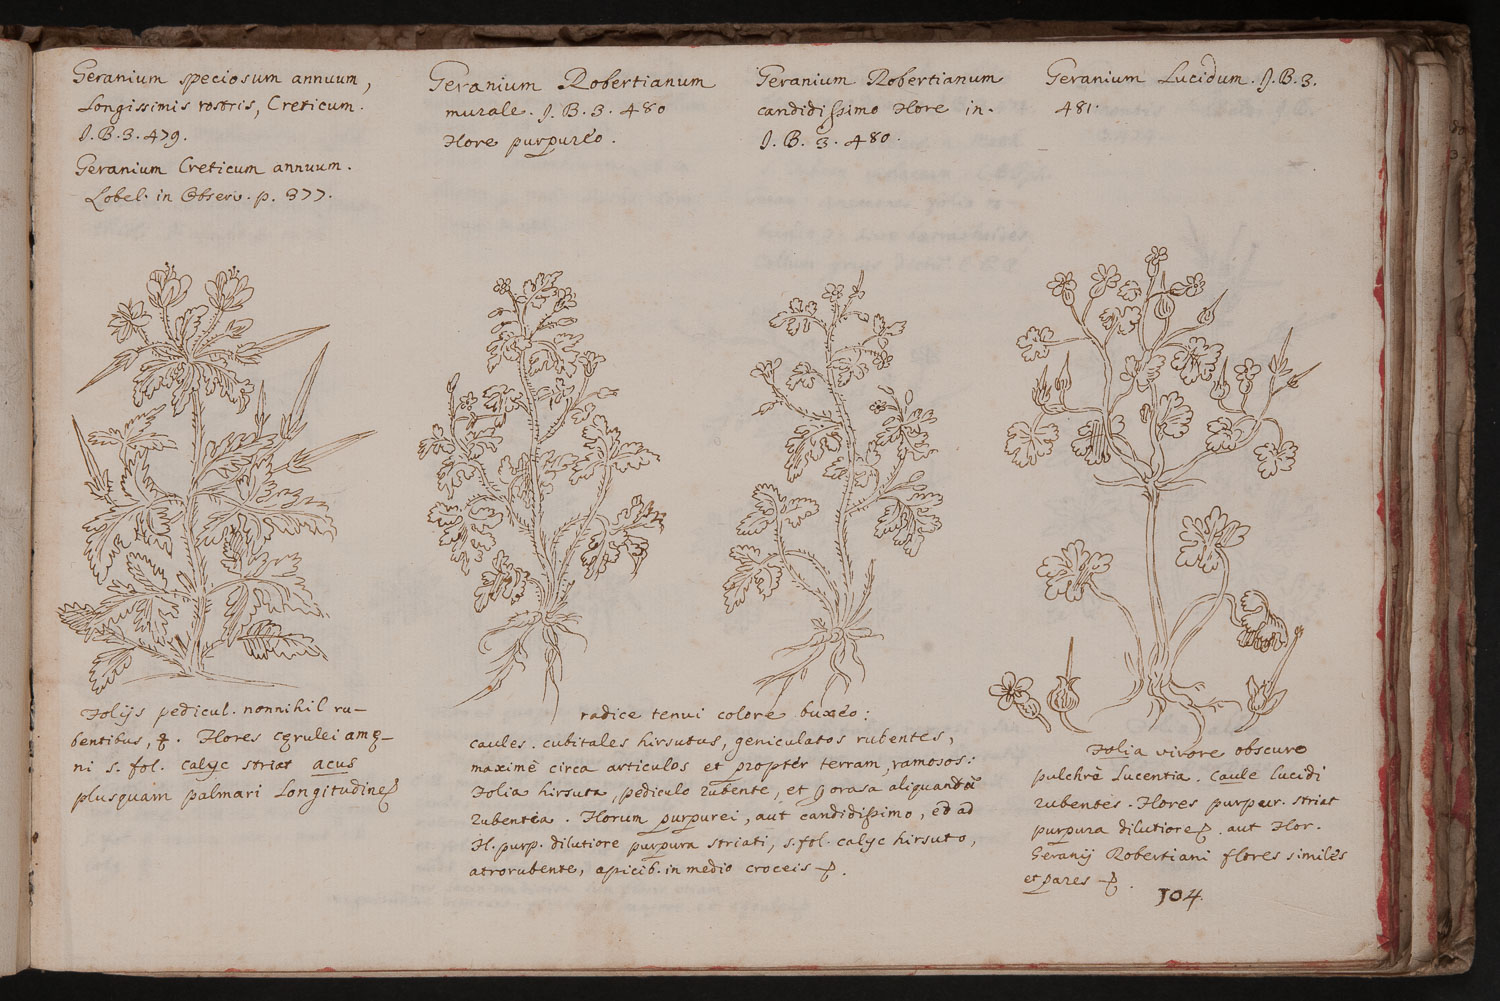 Geranium speciosum annuum,
Longissimis rostris, Creticum.
J.B.3.479.
Geranium Creticum annuum.
Lobel. in Observ. p. 377.
Geranium Robertianum
murale. J. B. 3. 480
Flore purpureo.
Geranium Robertianum
candidissimo Flore in.
J. B. 3. 480.
Geranium Lucidum. J. B. 3.
481.
Folijs pedicul. nonnihil ru-
bentibus, &. Flores cęrulei amę-
ni 5. fol. calyc striat acus
plusquam palmari Longitudine
radice tenui colore buxeo:
caules. cubitales hirsutus, geniculatos rubentes,
maximè circa articulos et propter terram, ramosos:
Folia hirsuta, pediculo rubente, et aliquando
rubentia. Florum purpurei, aut candidissimo, ed ad
Fl. purp. dilutiore purpura striati, 5. fol. calyc hirsuto,
atrorubente, apicib. in medio croceis
Folia virore obscuro
pulchrè Lucentia. Caule Lucidi
rubentes. Flores purpur. striat
purpura dilutiore. aut Flor.
Geranij Robertiani flores similes
et pares
104